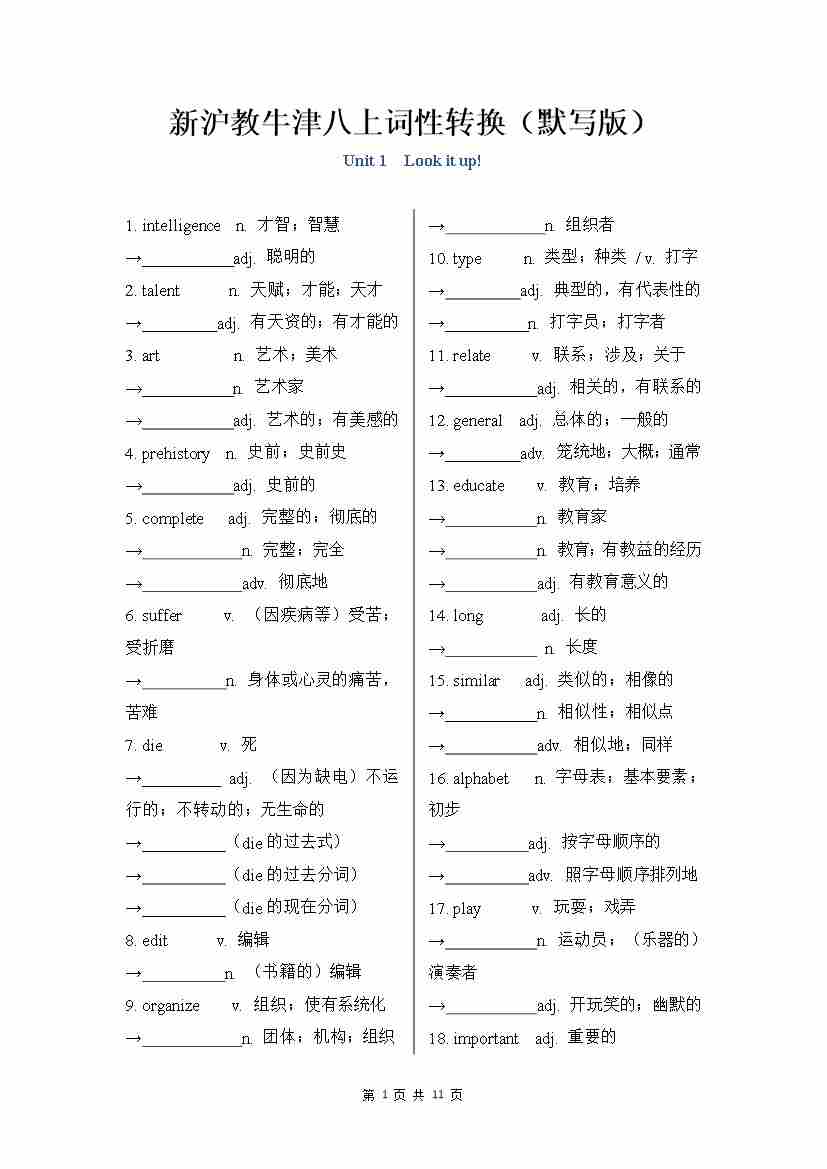 新沪教牛津八上词性转换（默写版）
Unit 1 Look it up!
1. intelligence n. 才智；智慧
→___________adj. 聪明的
2. talent n. 天赋；才能；天才
→_________adj. 有天资的；有才能的
3. art n. 艺术；美术
→___________n. 艺术家
→___________adj. 艺术的；有美感的
4. prehistory n. 史前；史前史
→___________adj. 史前的
5. complete adj. 完整的；彻底的
→____________n. 完整；完全
→____________adv. 彻底地
6. suffer v. （因疾病等）受苦；
受折磨
→__________n. 身体或心灵的痛苦，
苦难
7. die v. 死
→_________ adj. （因为缺电）不运
行的；不转动的；无生命的
→__________（die的过去式）
→__________（die的过去分词）
→__________（die的现在分词）
8. edit v. 编辑
→__________n. （书籍的）编辑
9. organize v. 组织；使有系统化
→____________n. 团体；机构；组织
→____________n. 组织者
10. type n. 类型；种类 / v. 打字
→_________adj. 典型的，有代表性的
→__________n. 打字员；打字者
11. relate v. 联系；涉及；关于
→___________adj. 相关的，有联系的
12. general adj. 总体的；一般的
→_________adv. 笼统地；大概；通常
13. educate v. 教育；培养
→___________n. 教育家
→___________n. 教育；有教益的经历
→___________adj. 有教育意义的
14. long adj. 长的
→___________ n. 长度
15. similar adj. 类似的；相像的
→___________n. 相似性；相似点
→___________adv. 相似地；同样
16. alphabet n. 字母表；基本要素；
初步
→__________adj. 按字母顺序的
→__________adv. 照字母顺序排列地
17. play v. 玩耍；戏弄
→___________n. 运动员；（乐器的）
演奏者
→___________adj. 开玩笑的；幽默的
18. important adj. 重要的
第 1 页 共 11 页